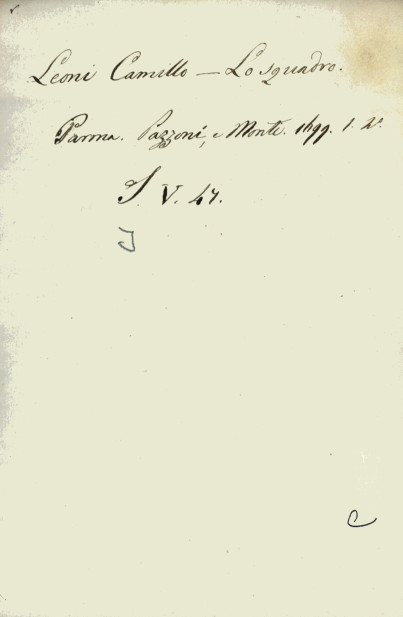 Leoni Camillo — Lo squadro.
Parma. Pazzoni, e Monti. 1699. 1. 4º
S. V. 47.
J
C